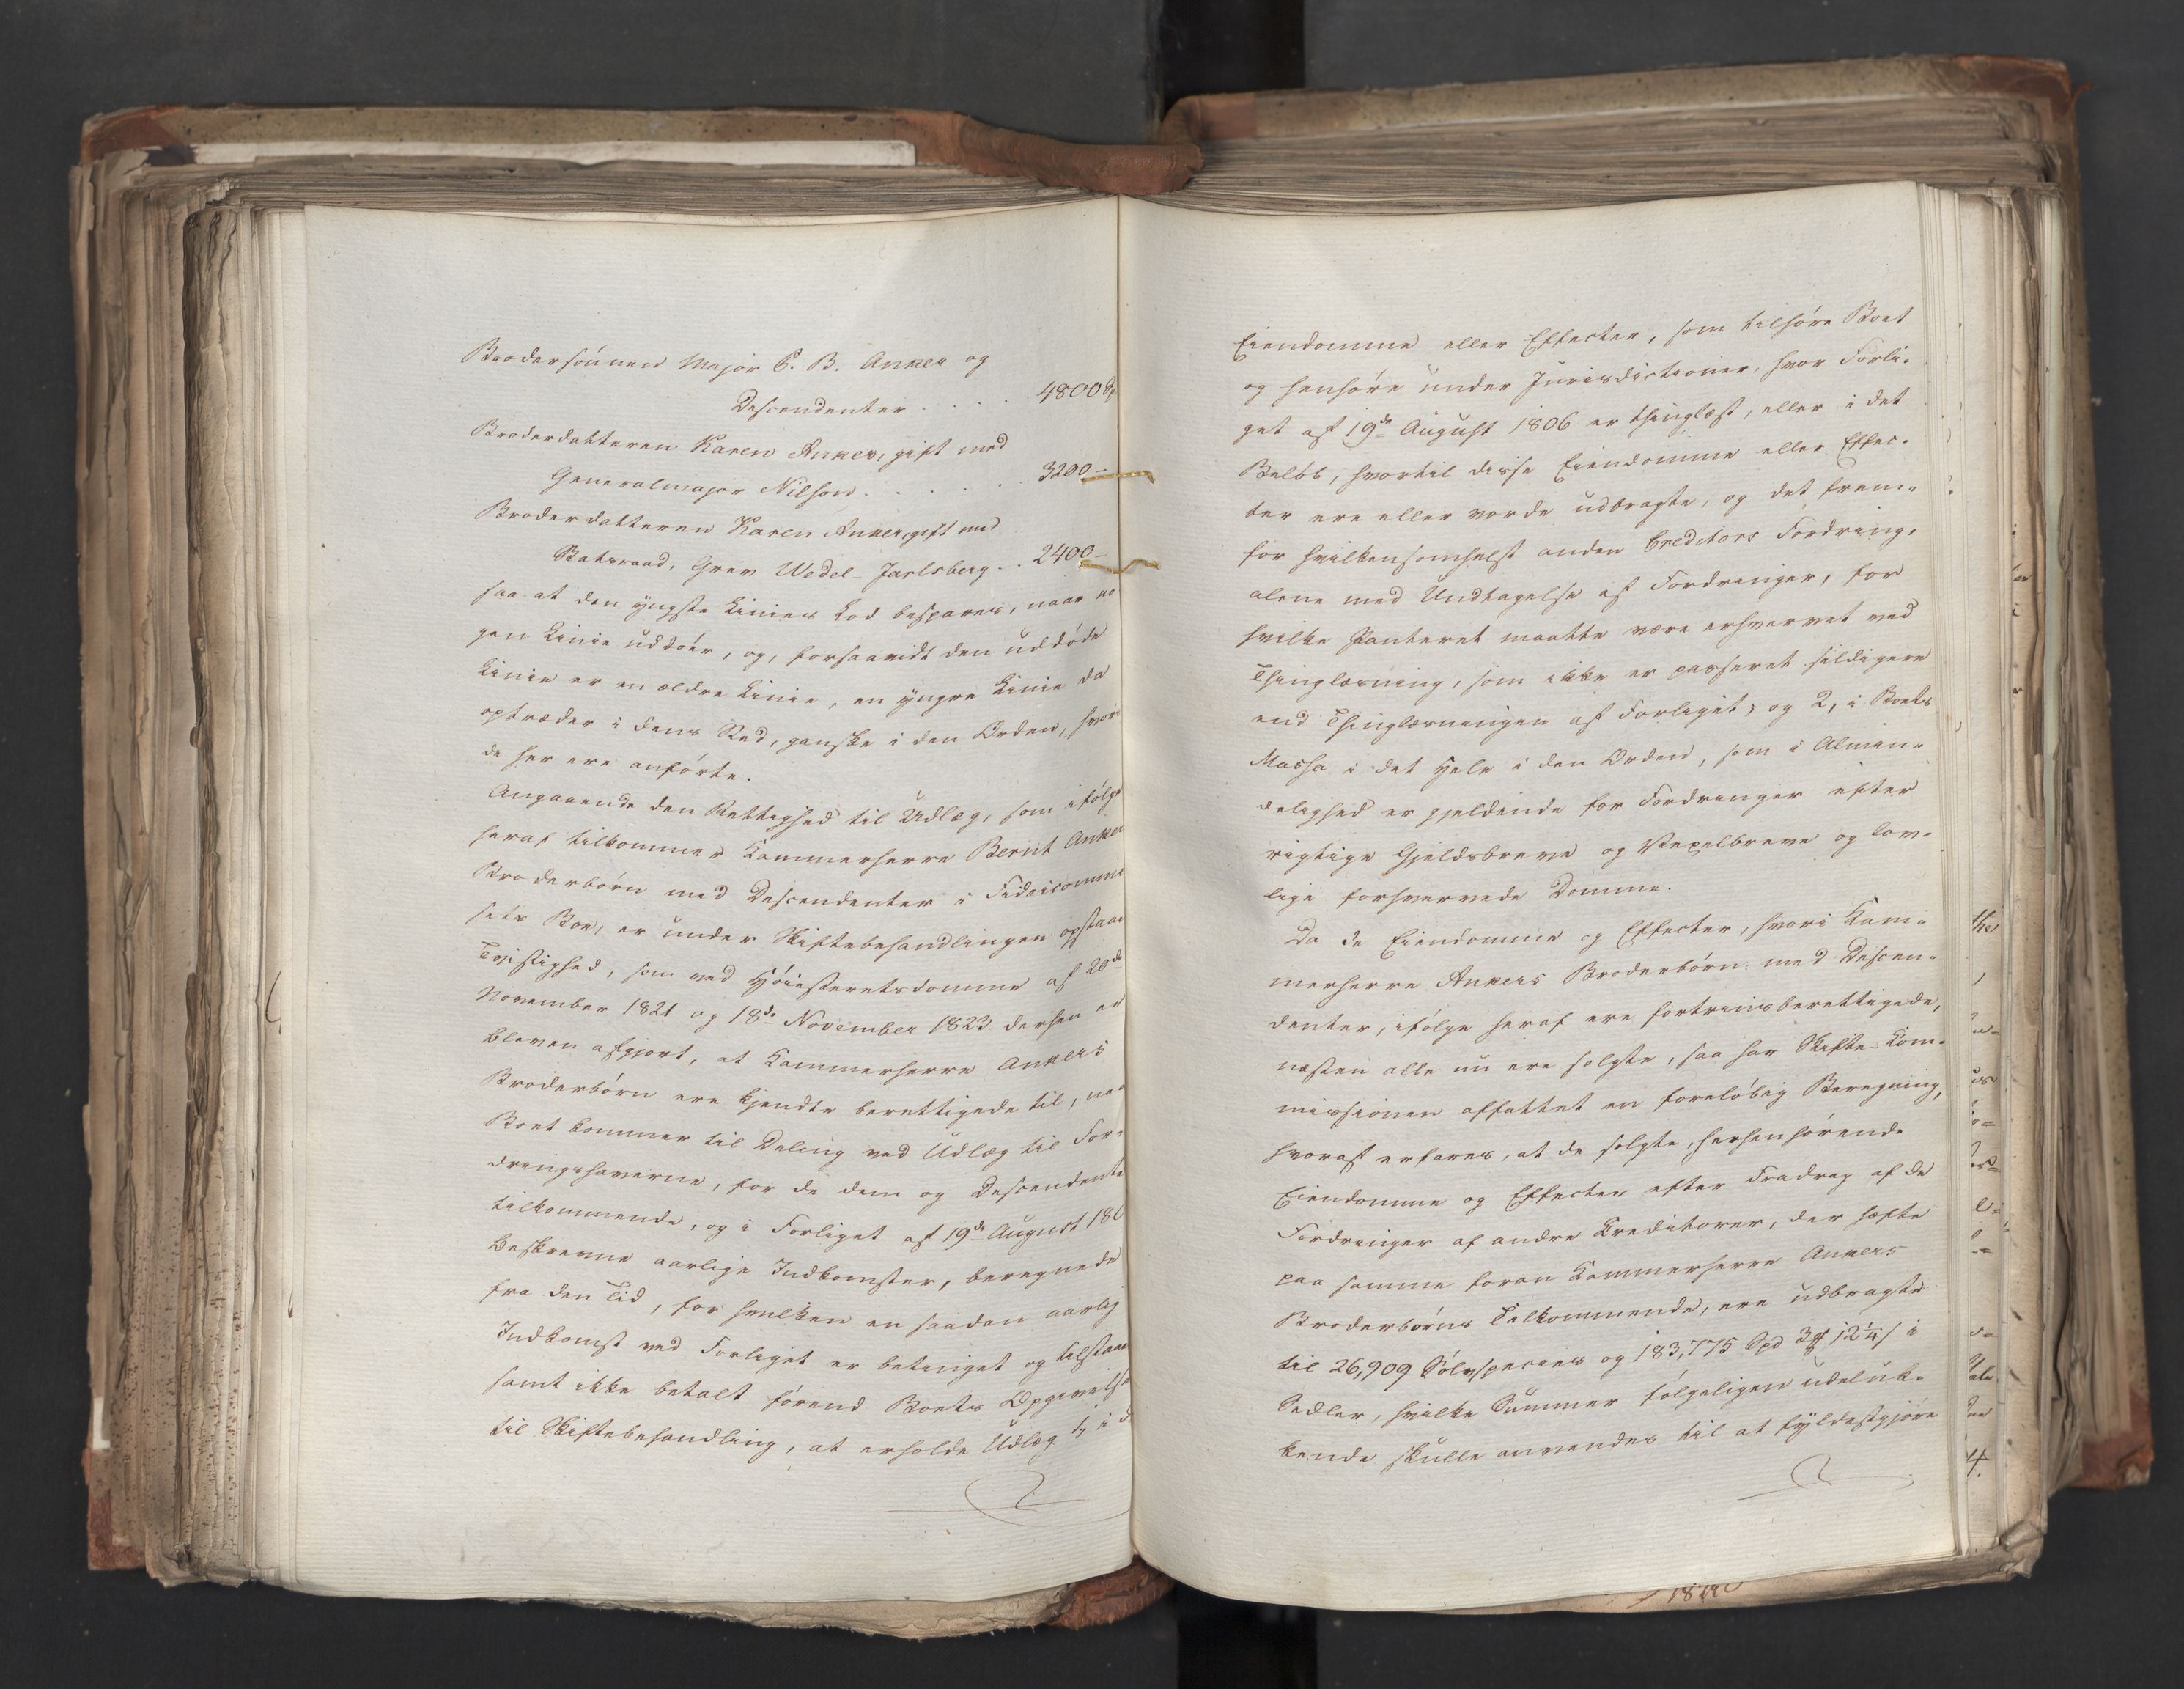 Brodersønnen Major P. B. Anker og
Descendenter . . . . 4800 Rd
Broderdatteren Karen Anker, gift med
Generalmajor Nilson . . . . . . 3200 -
Broderdatteren Karen Anker, gift med
Statsraad, Grev Wedel-Jarlsberg . . 2400 -
saa at den yngste Linies Lod bespares, naar no
gen Linie uddöer, og, forsaavidt den uddöde
Linie er en ældre Linie, en yngre Linie da
optræder i dens Sted, ganske i den Orden, hvori
de her ere anførte.
Angaaende den Rettighed til Udlæg, som ifølge
heraf tilkommer Kammerherre Bernt Anker
Broderbørn med Descendenter i Fideicommi
sets Boe, er under Skiftebehandlingen opstaae
Tvistighed, som ved Høiesteretsdomme af 20de
November 1821 og 18de November 1823 derhen er
bleven afgjort, at Kammerherre Ankers
Broderbørn ere kjendte berettigede til, naar
Boet kommer til Deling ved Udlæg til For-
dringshaverne, for de dem og Descendente
tilkommende, og i Forliget af 19de August 180
beskrevne aarlige Indkomster, beregnede
fra den Tid, for hvilken en saadan aarlig
Indkomst ved Forliget er betinget og tilstaae
samt ikke betalt førend Boets Opgivelse
til Skiftebehandling, at erholde Udlæg 1, i d
Eiendomme eller Effecter, som tilhøre Boet
og henhøre under Jurisdictioner, hvor Forli-
get af 19de August 1806 er thinglæst, eller i det
Beløb, hvortil disse Eiendomme eller Effec-
ter ere eller vorde udbragte, og det frem-
for hvilkensomhelst anden Creditors Fordring,
alene med Undtagelse af Fordringer, for
hvilke Panteret maatte være erhvervet ved
Thinglæsning, som ikke er passeret sildigere
end Thinglæsningen af Forliget; og 2, i Boets
Massa i det Hele i den Orden, som i Almin-
delighed er gjeldende for Fordringer efter
rigtige Gjeldsbreve og Vexelbreve og lov-
lige forhvervede Domme.
Da de Eiendomme og Effecter, hvori Kam-
merherre Ankers Broderbørn med Descen-
denter, ifølge heraf ere fortrinsberettigede,
næsten alle nu ere solgte, saa har Skifte-Com-
missionen affattet en foreløbig Beregning,
hvoraf erfares, at de solgte, herhenhørende
Eiendomme og Effecter efter Fradrag af de
Fordringer af andre Creditorer, der hæfte
paa samme foran Kammerherre Ankers
Broderbørns Tilkommende, ere udbragte
til 26,909 Sølvspecies og 183,775 Spd 3 12¼ s i
Sedler, hvilke Summer følgeligen udeluk-
kende skulle anvendes til at fyldestgjøre